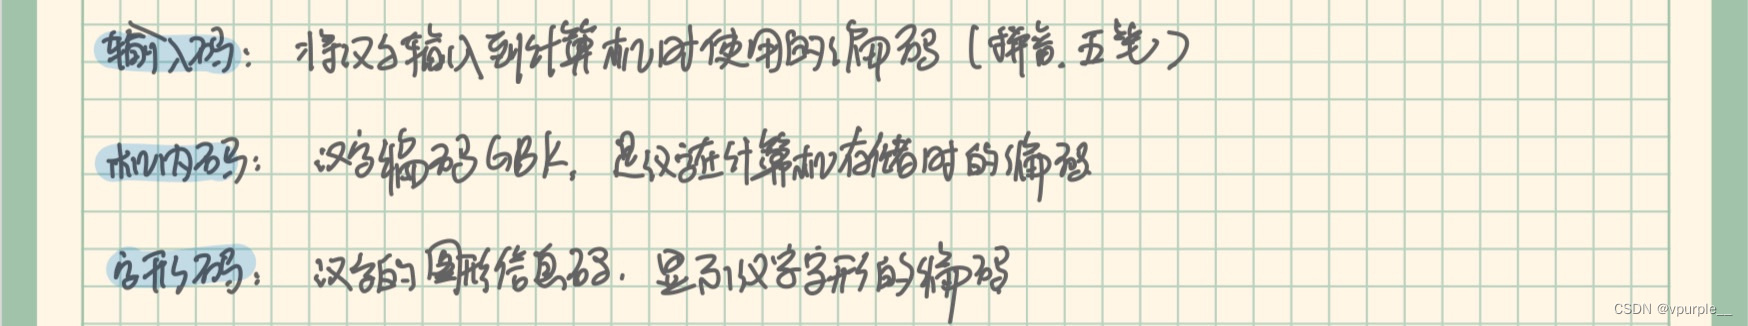 输入码： 将汉字输入到计算机时使用的编码（拼音.五笔）
机内码： 汉字编码GBK, 是汉字在计算机存储时的编码
字形码： 汉字的图形信息码. 显示汉字字形的编码
CSDN @vpurple__